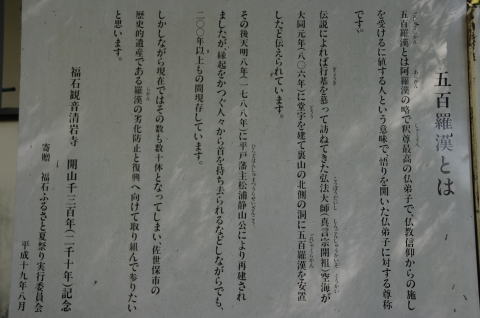 五百羅漢とは
五百羅漢とは阿羅漢の略で釈尊最高の仏弟子で、仏教信仰からの施し
を受けるに値する人という意味で悟りを開いた仏弟子に対する尊称
です。
伝説によれば行基を慕って訪ねてきた弘法大師(真言宗開祖)空海が
大同元年(八〇六年)に堂宇を建て裏山の北側の洞に五百羅漢を安置
したと伝えられています。
その後天明八年(一七八八年)に平戸藩主松浦静山公により再建され
ましたが、縁起をかつぐ人々から首を持ち去られるなどしながらでも、
二〇〇年以上もの間現存しています。
しかしながら現在ではその数も数十体となってしまい、佐世保市の
歴史的遺産である羅漢の劣化防止と復興へ向けて取り組んで参りたい
と思います。
福石観音清岩寺 開山千三百年(二千十年)記念
寄贈 福石・ふるさと夏祭り実行委員会
平成十九年八月